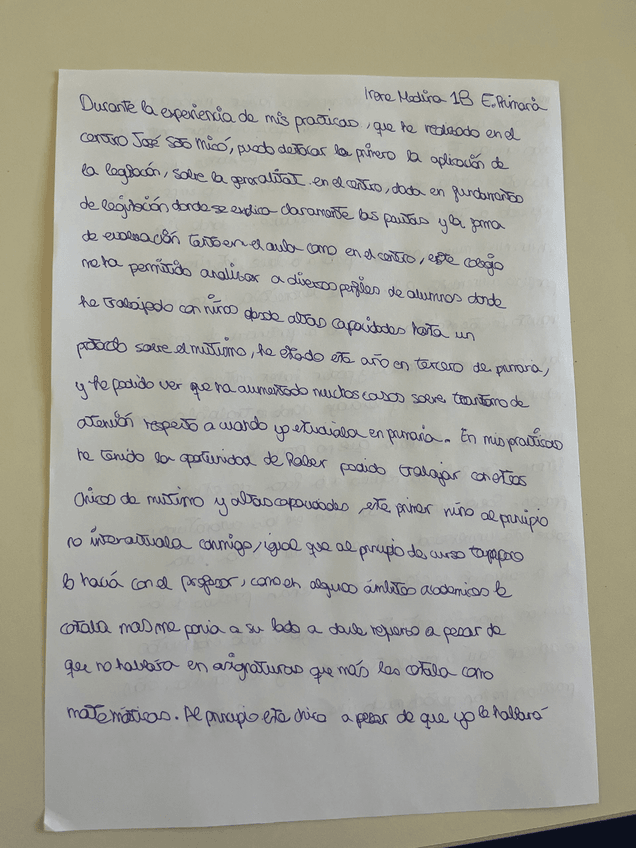 Irene Medina 1B E.Primaria
Durante la experiencia de mis practicas, que he realizado en el
centro José Soto Micó, puedo destacar lo primero la aplicación de
la legislación, sobre la generalitat en el centro, dada en fundamentos
de legislación donde se explica claramente las pautas y la forma
de evaluación tanto en el aula como en el centro, este colegio
me ha permitido analisar a diversos perfiles de alumnos donde
he trabajado con niños desde altas capacidades hasta un
protocolo sobre el mutismo, he estado este año en tercero de primaria,
y he podido ver que ha aumentado muchos casos sobre trastorno de
atención respeto a cuando yo estudiaba en primaria. En mis practicas
he tenido la oportunidad de haber podido trabajar con estos
chicos de mutismo y altas capacidades, este primer niño al principio
no interactuaba conmigo, igual que al principio de curso tampoco
lo hacía con el profesor, como en algunos ámbitos academicos le
costaba mas me ponia a su lado a darle refuerzo a pesar de
que no hablara en asignaturas que más les costaba como
matemáticas. Al principio este chico a pesar de que yo le hablara